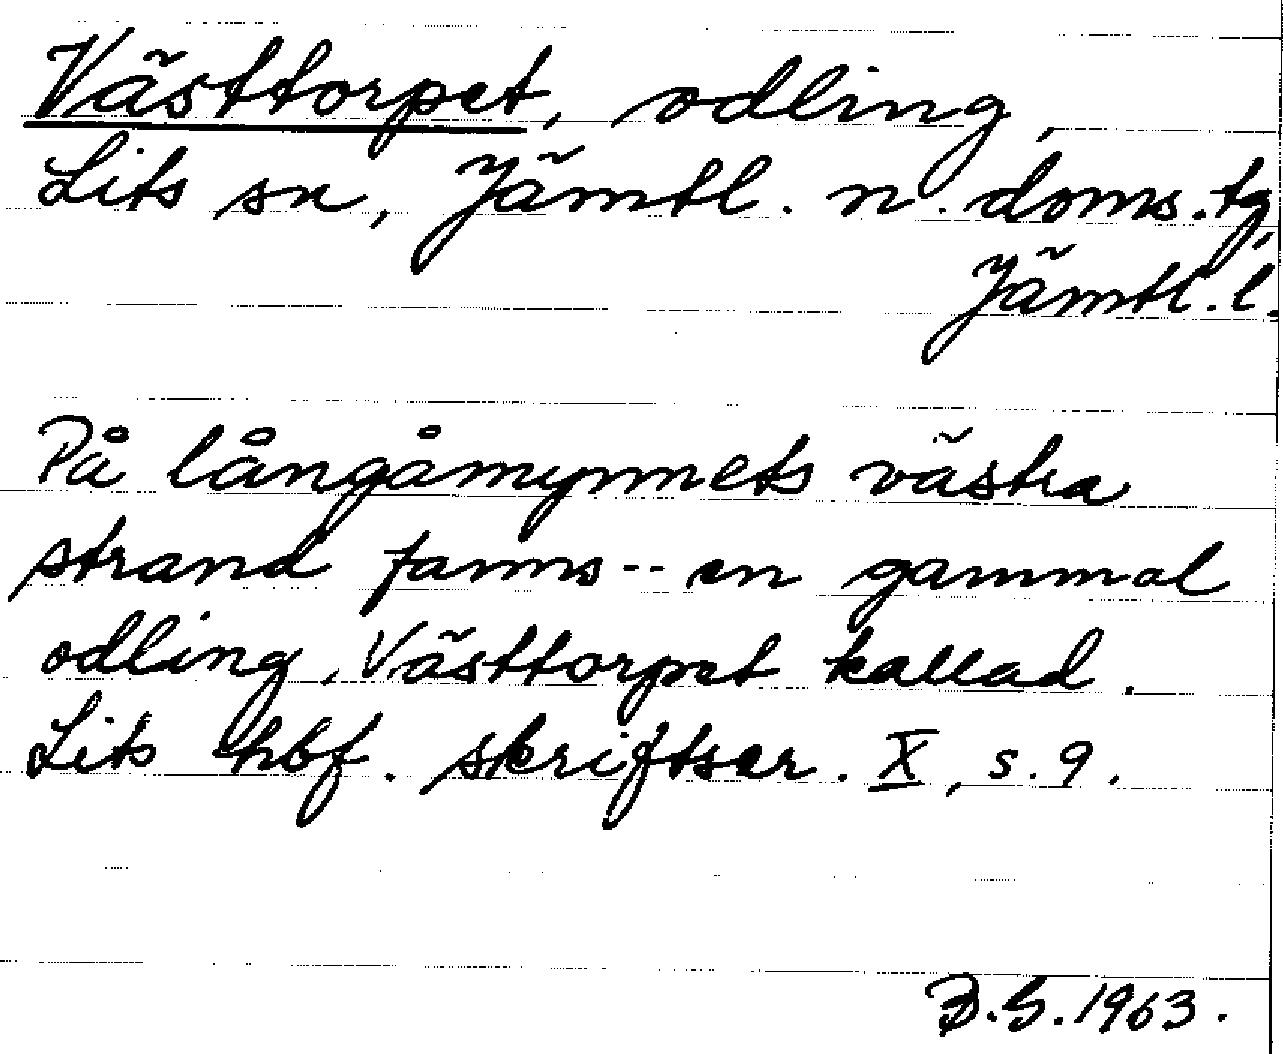 Västtorpet, odling,
Lits sn, Jämtl. n. doms. tg,
Jämtl. l.
På långåmynnets västra
strand fanns -- en gammal
odling, Västtorpet kallad.
Lits hbf. skriftser. X, s. 9.
1963.